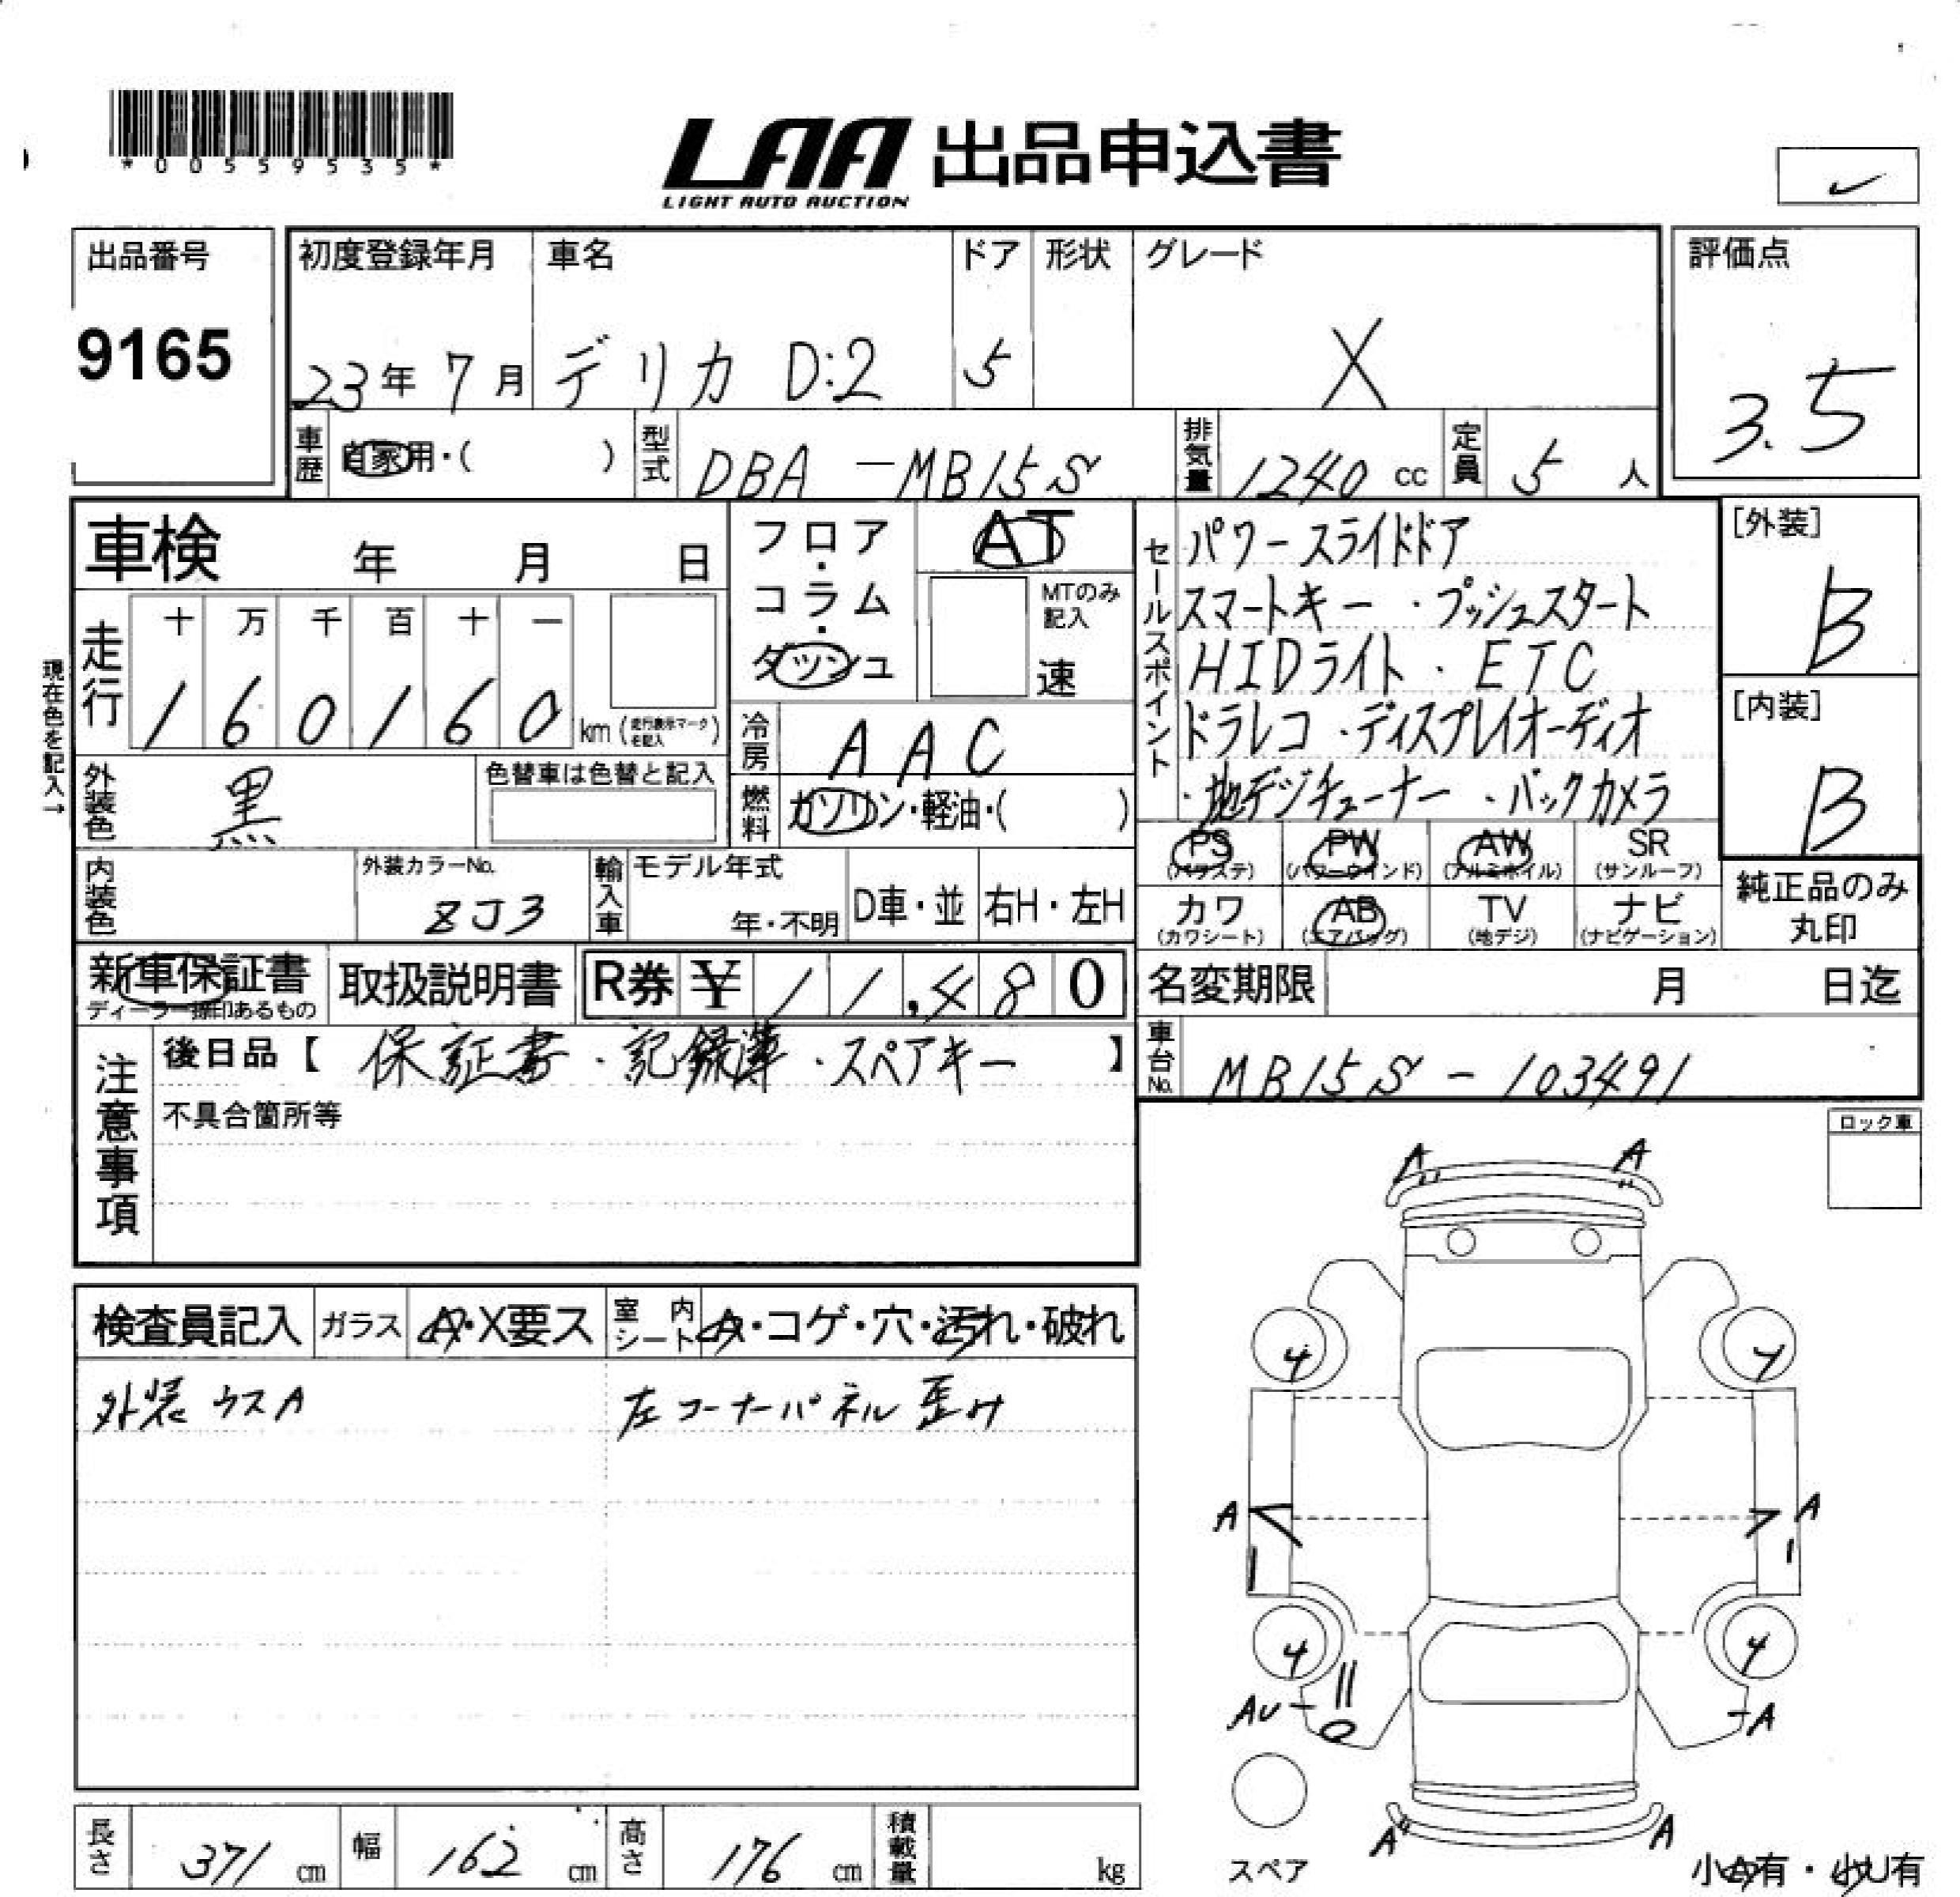 *00559535*
LAA 出品申込書
LIGHT AUTO AUCTION
出品番号
9165
初度登録年月 車名 ドア 形状 グレード 評価点
23年 7月 デリカ D:2 5 X 3.5
車歴 自家用・( ) 型式 DBA-MB15S 排気量 1240 cc 定員 5 人
車検 年 月 日
フロア・コラム・ダッシュ AT
MTのみ記入
速
セールスポイント
パワースライドドア
スマートキー・プッシュスタート
HIDライト・ETC
ドラレコ・ディスプレイオーディオ
・地デジチューナー・バックカメラ
[外装]
B
[内装]
B
現在色を記入→
走行 十 万 千 百 十 一
1 6 0 1 6 0 km (走行表示マークを記入)
冷房 AAC
外装色 黒 色替車は色替と記入
燃料 ガソリン・軽油・( )
PS (パワステ) PW (パワーウインド) AW (アルミホイル) SR (サンルーフ)
カワ (カワシート) AB (エアバッグ) TV (地デジ) ナビ (ナビゲーション)
純正品のみ丸印
内装色 外装カラーNo. ZJ3 輸入車 モデル年式 年・不明 D車・並 右H・左H
新車保証書 取扱説明書 R券 ¥ 11,480
ディーラー捺印あるもの
名変期限 月 日迄
注意事項
後日品【 保証書・記録簿・スペアキー 】
不具合箇所等
車台No. MB15S-103491
ロック車
検査員記入 ガラス A・X要ス 室内シート A・コゲ・穴・汚れ・破れ
外装ウスA 左コーナーパネル歪み
A A
4 4
A A
4 4
AU A
A A
スペア
小A有・小U有
長さ 371 cm 幅 162 cm 高さ 176 cm 積載量 kg